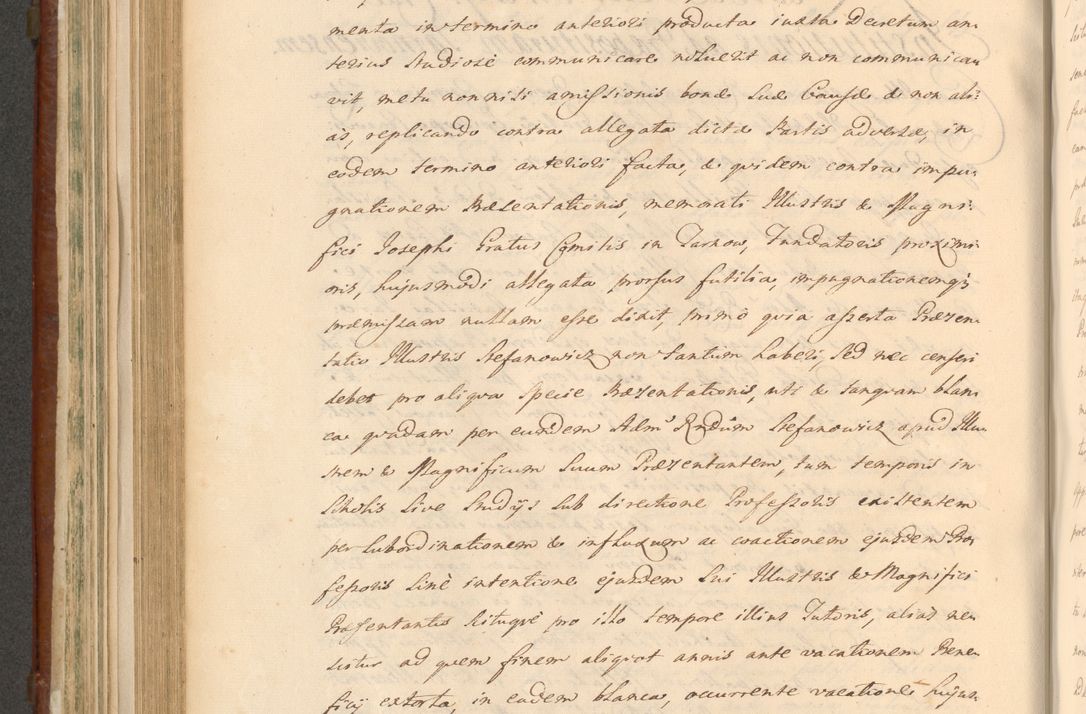 menta in termino anteriori producta iuxta Decretum an-
terius studiose communicare noluerit ac non communica-
vit, metu nonnisi amissionis bonæ suæ Causæ & non ali:
as, replicando contra allegata dictæ Partis adversæ, in
eodem termino anteriori facta, & quidem contra impu-
gnationem Præsentationis, memorati Illustris & Magni:
fici Josephi Gratus Comitis in Tarnow, Fundatoris proximi-
oris, hujusmodi allegata prorsus futilia, impugnationemq;
præmissam nullam esse dixit, primò quia asserta Præsen-
tatio Illustris Stefanowicz non tantum haberi, sed nec censeri
debet pro aliqua specie Præsentationis, uti & tanquam blan-
ca quædam per eundem Adm Rndum Stefanowicz apud Illu-
strem & Magnificum suum Præsentantem, tum temporis in
Scholis sive Studijs sub directione Professoris existentem
per subordinationem & influxum ac coactionem ejusdem Pro-
fessoris sinè intentione ejusdem sui Illustris & Magnifici
Præsentantis sitque pro illo tempore illius Tutoris, alias ne-
scitur ad quem finem aliquot annis ante vacationem Bene-
ficij extorta, in eadem blanca, occurrente vacatione hujus-